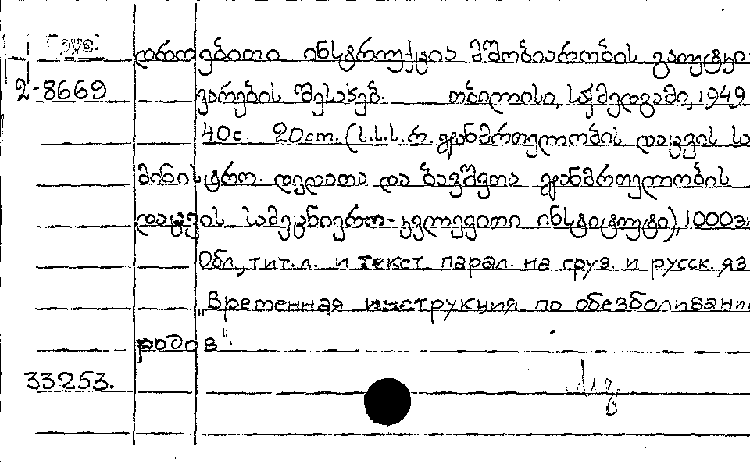 დროებითი ინსტრუქცია მშობიარობის გაუტკი
2-8669 ვარების შესახებ. თბილისი, საქმედგამი, 1949
40с. 20cm. (ს.ს.ს.რ. ჯანმრთელობის დაცვის სა
მინისტრო. დედათა და ბავშვთა ჯანმრთელობის
დაცვის სამეცნიერო-კვლევითი ინსტიტუტი), 1000
Обл., тит. л. и текст парал. на груз. и русск. яз
„Временная инструкция по обезболивани
родов".
33253.